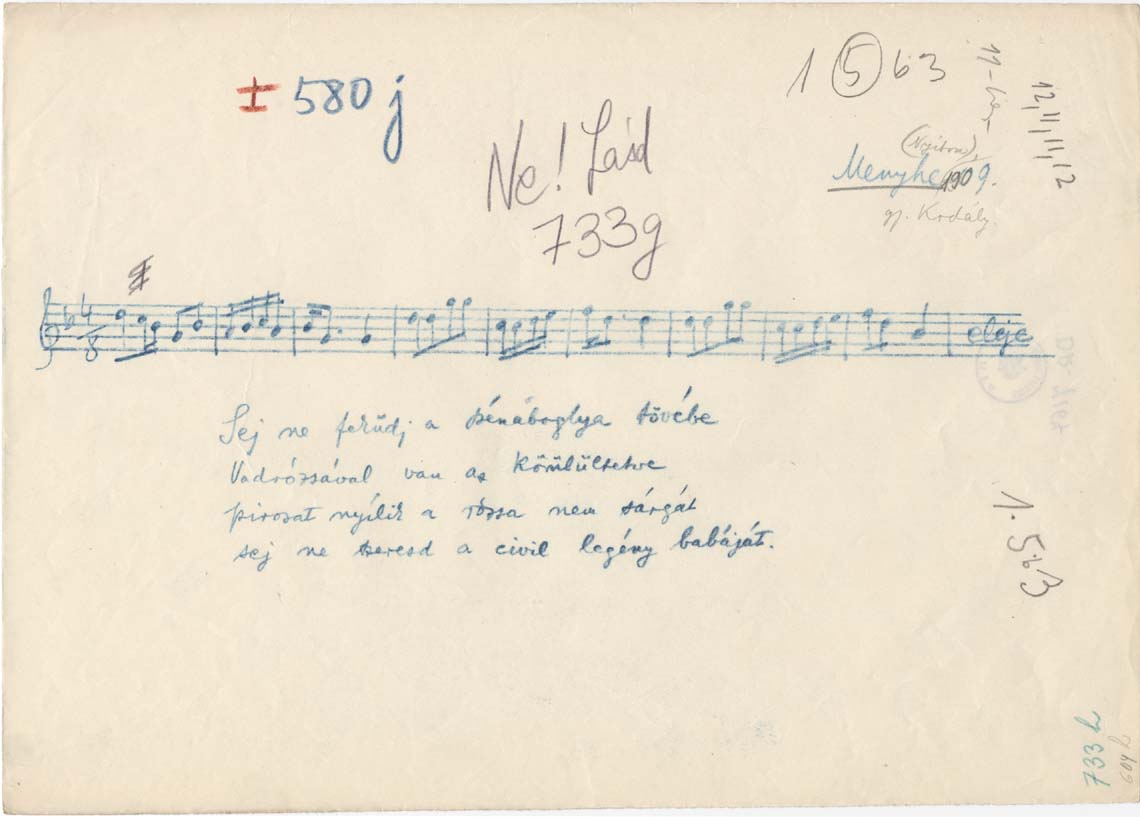 ± 580 j
1 5 b 3
12, 11, 11, 12
Ne! Lásd
733g
(Nyitra),
Menyhe, 1909.
gy. Kodály
4
8
elöje
Sej ne feküdj a szénáboglya tövébe
Vadrózsával van az körülűltetve
pirosat nyílik a rózsa nem sárgát
sej ne szeresd a civil legény babáját.
1. 5 b3
733 h
604 g